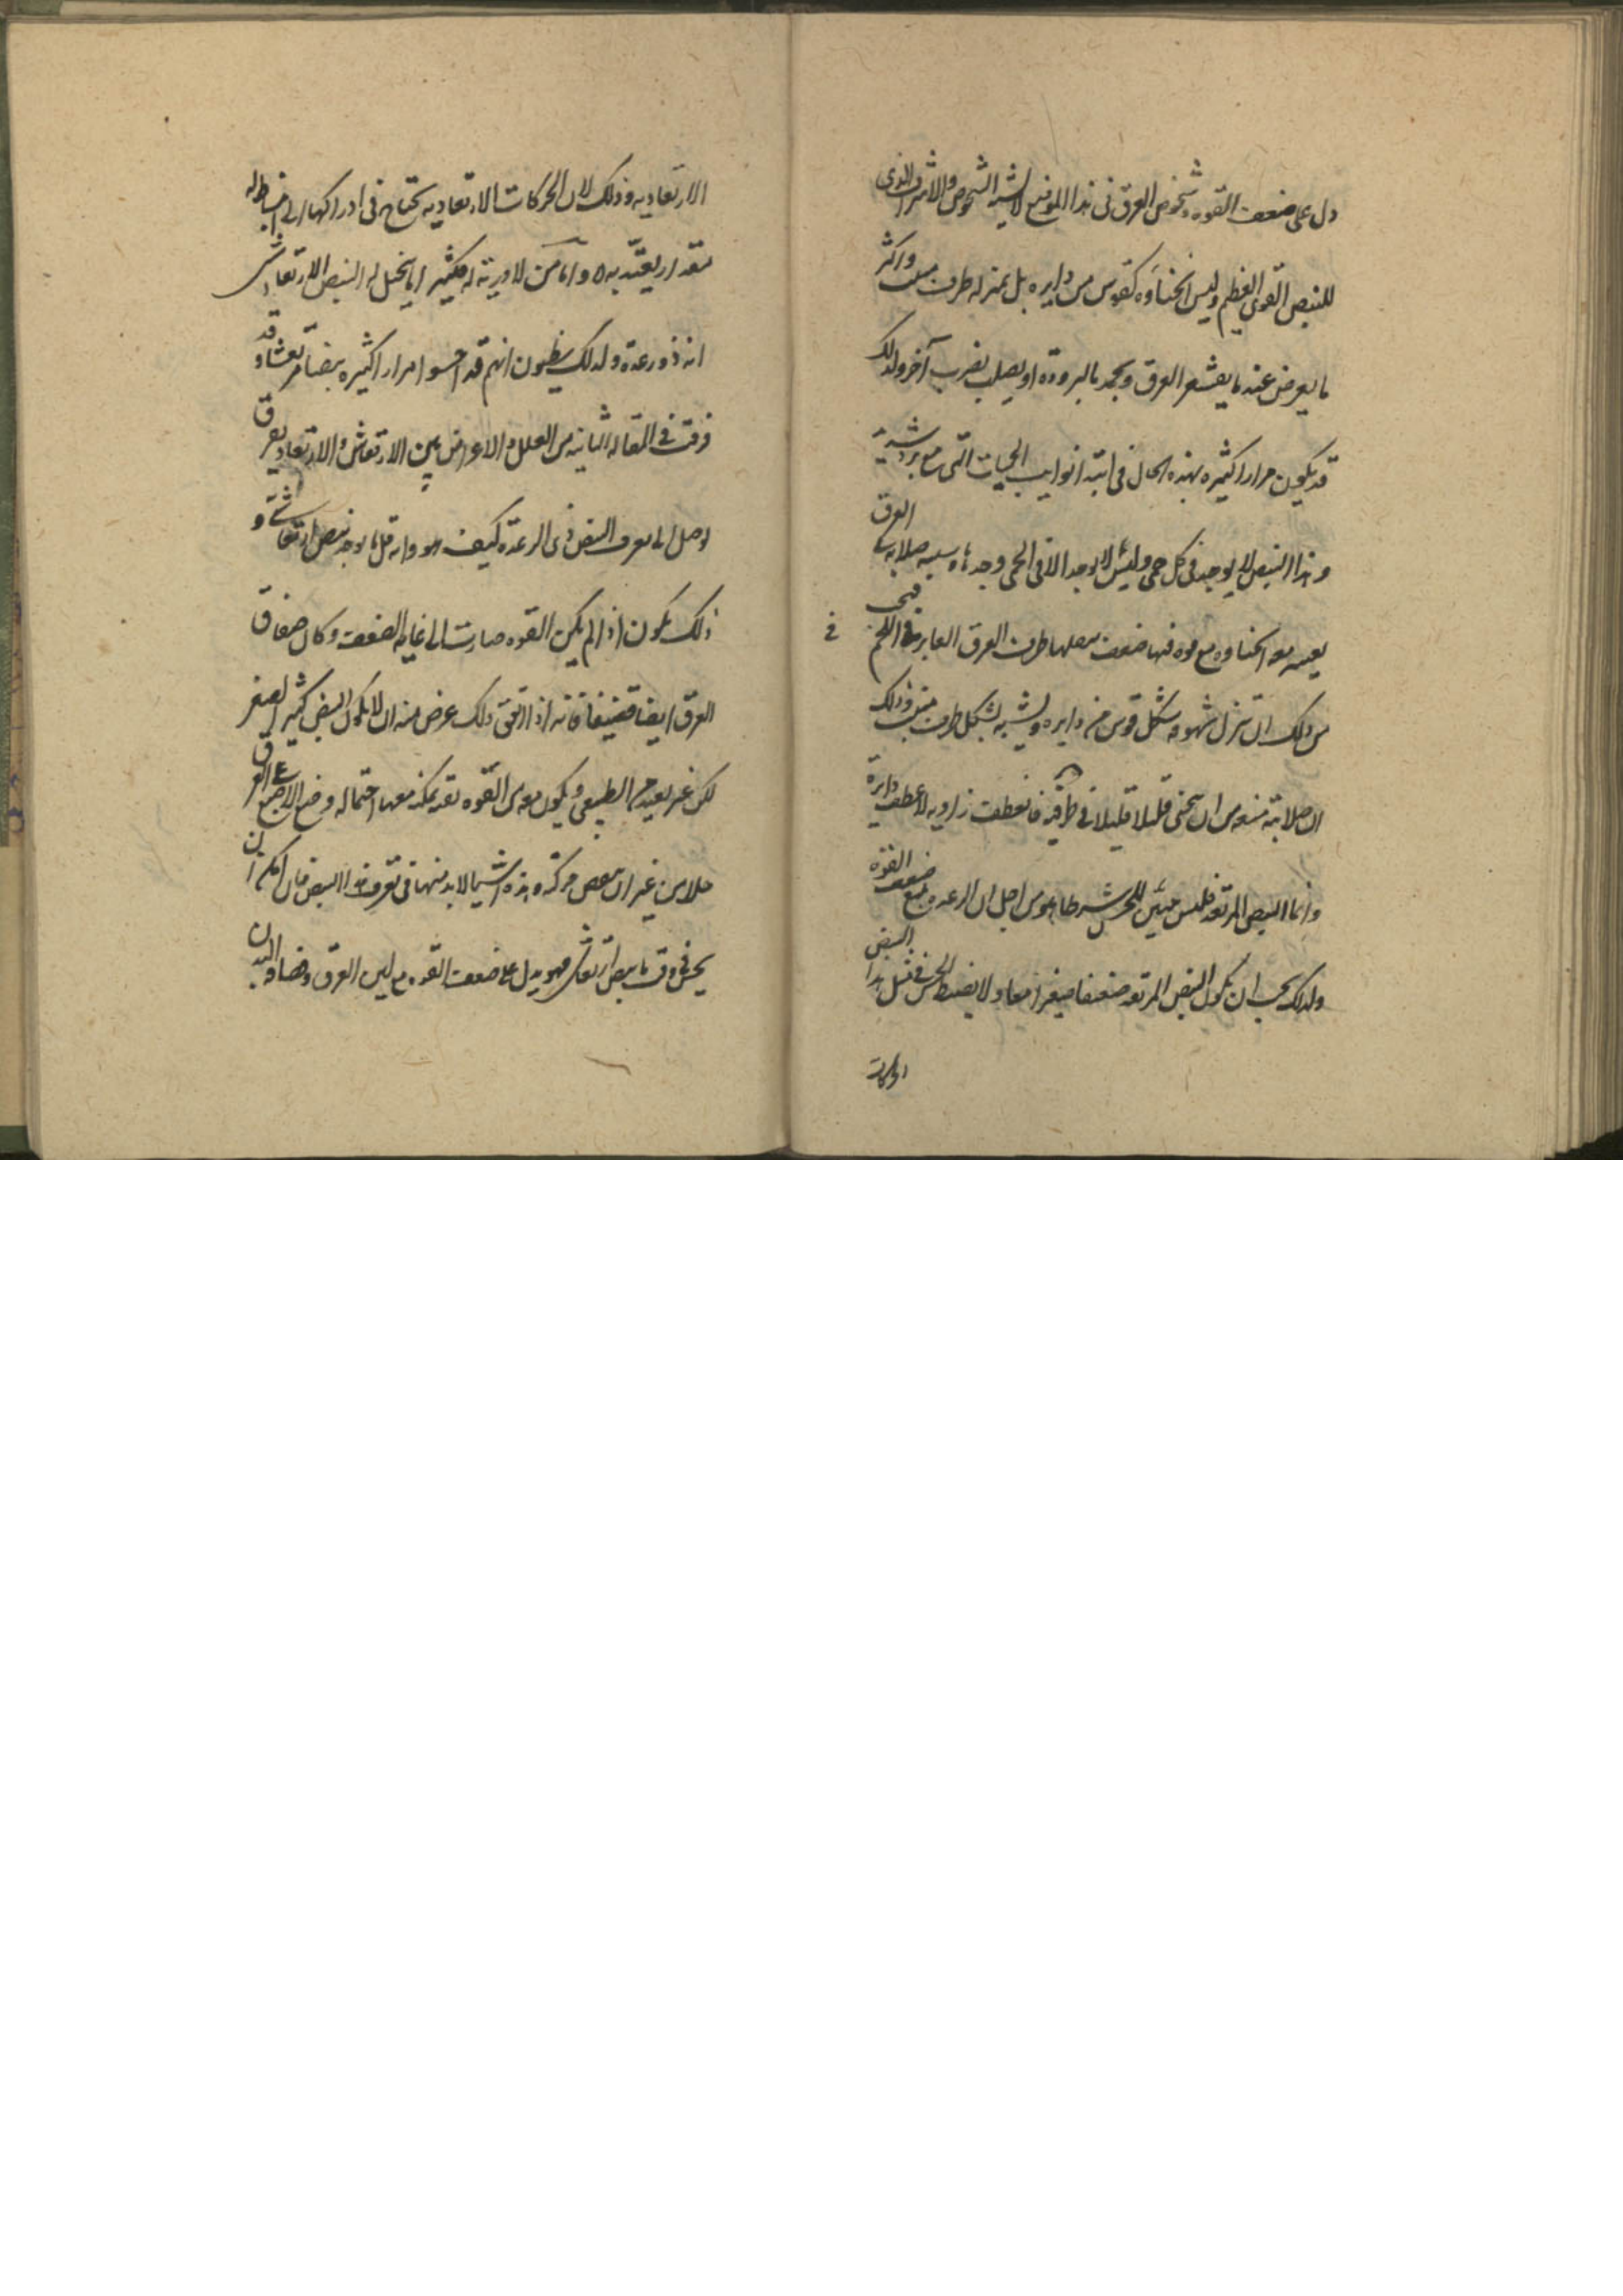 دل على ضعف القوه وشخوص العرق فى هذا الموضع لا يشبه الشخوص والاشراف الذى
للنبض القوى العظيم وليس انحناوه كقوس من دايره بل بمنزله طرف واكثر
ما يعرض عند ما يقشعر العرق ويجمد بالبرودة او يصلب بضرب آخر ولذلك
قد يكون مرارا كثيره بهذه الحال فى ابتدا نوايب الحميات التى مع برد شديد
وهذا النبض لا يوجد فى كل حمى وليس لا يوجد الا فى الحمى وحدها سببه صلابه العرق
يعسر معه انحناوه مع قوه فيها ضعف طرف العرق الغابر فى اللحم فيجب
من ذلك ان شكل قوس من دايره ويشبه بشكل طرف وذلك
ان صلابته تمنعه من ان ينحنى قليلا قليلا فى طرفيه فانعطف زاويه لا عطف دايرة
وانما النبض المرتعد فليس يتبين للحس من اجل ان الرعده مع ضعف القوه
ولذلك يجب ان يكون النبض المرتعد ضعيفا صغيرا معا ولا يضبط الحس فى مثل هذا النبض
الحركات
الارتعاديه وذلك لان الحركات الارتعاديه تحتاج فى ادراكها الى انبساط له
مقدار يعتد به واما من لا دربة له فكثيرا ما يتخيل له النبض الارتعاشى
انه ذو رعدة ولذلك يظنون انهم قد احسوا مرارا كثيره نبضا مرتعشا وقد
فرقت فى المقاله الثانيه من العلل والاعراض بين الارتعاش والارتعاد بفرق
يوصل الى معرفة النبض ذى الرعدة كيف هو وانه قل ما يوجد نبض ارتعاشى و
ذلك يكون اذا لم يكن القوه صارت الى غايه الضعف وكان صفاق
العرق ايضا قضيفا فانه اذا اتفق ذلك عرض منه ان لا يكون النبض كثير الصغر
لكن غير بعيد من الطبيعى ويكون معه من القوه قدر يمكنه معها احتماله وضع الاصبع على العرق
حلا من غير ان ينقص حركته وهذه اشيا لا بد منها فى تعرف هذا النبض فان امكن ان
يحس فى وقت ما نبض ارتعاش فهو يدل على ضعف القوه مع لين العرق وقضافه البدن